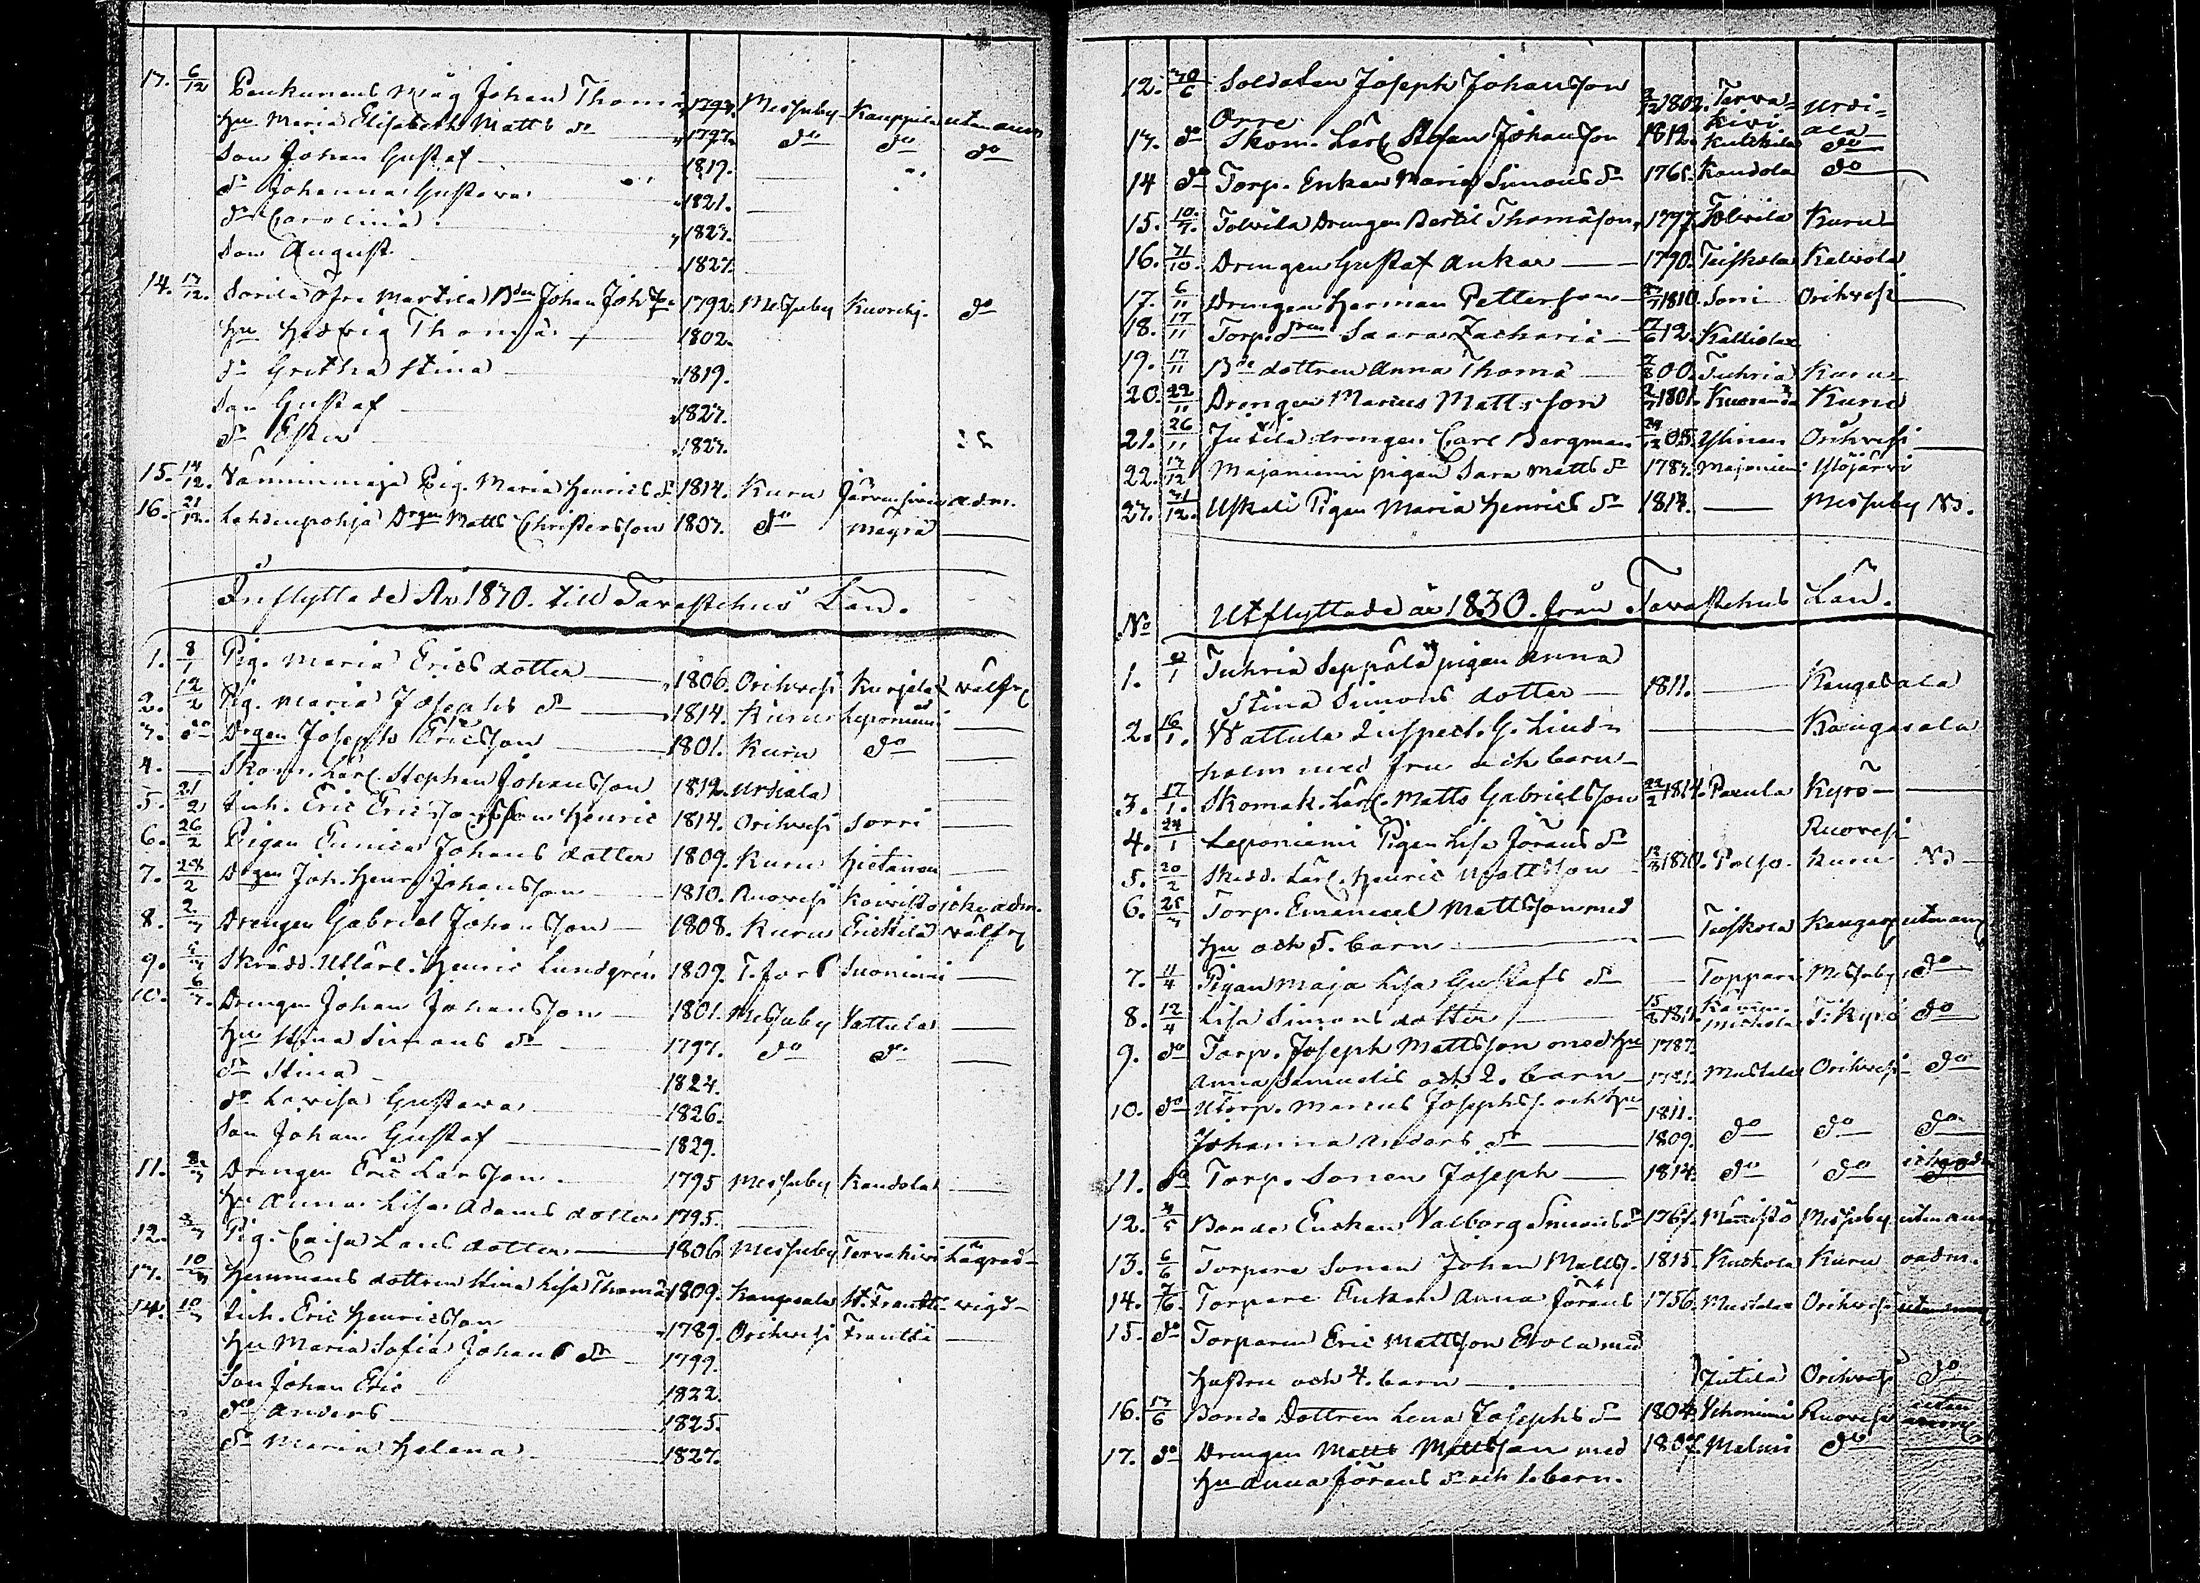 13. 6/12 Johan Thom 1793. Messuby Kauppila utan anm
Hu Maria Elisabeth Matts dr 1797. do do do
Son Johan Gustaf 1819.
dr Johanna Gustava 1821.
dr Carolina 1823.
Son August 1827.
14. 13/12. Sorila Öfre Marttila Bden Johan Joh 1792. Messuby do
Hu Hedvig Thomæ 1802.
dr Gretha Stina 1819.
Son Gustaf 1823.
dr Ester 1827.
15. 14/12. Pig. Maria Henrics dr 1814. Kuru adm.
16. 21/12. Lahdenpohja Drgen Matts Christersson 1803. do Mäyrä
Inflyttade År 1830. till Tavastehus Län.
1. 8/1 Pig. Maria Ericsdotter 1806. Orihvesi Kurjela välfr
2. 12/2 Pig. Maria Josephs dr 1814. Kuru Leponiemi
3. do Drgen Joseph Ericsson 1801. Kuru do
4. Skom. Lärl. Stephan Johansson 1812. Urdiala
5. 21/2 Inh. Eric Ericssons Son Henric 1814. Orihvesi Sorri
6. 26/2 Pigan Eunica Johansdotter 1809. Kuru Hietanen
7. 28/2 Drgen Joh. Henr. Johansson 1810. Ruovesi Koivisto ick. adm.
8. 2/3 Drengen Gabriel Johansson 1808. Kuru Erickilä välfr
9. Skrädd. Utlärl. Henric Lundgrén 1809. T.fors Suoniemi
10. 6/3. Drengen Johan Johansson 1801. Messuby Vattula
Hu Stina Simons dr 1797. do do
dr Stina 1824.
do Lovisa Gustava 1826.
Son Johan Gustaf 1829.
11. 8/3 Drengen Eric Larsson 1795 Messuby Kaudola
Hu Anna Lisa Adams dotter 1795.
12. Pig. Caisa Lars dotter 1806. Messuby Tervakivi Lägrad
13. 10/3 Hemmans dottren Stina Lisa Thomæ 1809. Kangasala St. Frantti vigd
14. 10/3 Inh. Eric Henricsson 1789. Orihvesi Frantti
Hu Maria Sofia Johans dr 1799.
Son Johan Eric 1822.
do Anders 1825.
dr Maria Helena 1827.
12. 30/6 Soldaten Joseph Johansson 1802. Terva= Urdi=
Orre kivi ala
13. do Skom. Lärl. Stefan Johansson 1812. Kulckila do
14 do Torp. Enkan Maria Simons dr 1765. Kaudola do
15. 10/7. Tolvila Drengen Bertil Thomasson 1797. Tolvila Kuru
16. 31/10. Drengen Gustaf Ankar 1790. Teiskola Kalvola
17. 6/11 Drengen Herman Petterson 1810. Sorri Orihvesi
18. 17/11 Torp. dren Saara Zachariæ 17/6 12. Kalliola
19. 17/11 Bde dottren Anna Thomæ 00. Tuhria Kuru
20. 22/11 Drengen Marcus Mattsson 1801. Kuoranda Kuru
21. 26/11 Jutila drengen Carl Bergman 05. Ylinen Orihvesi
22. 13/12 Majaniemi pigan Sara Matts dr 1787. Majaniemi Ylöjärvi
23. 31/12. Uskali Pigan Maria Henrics dr 1814. Messuby
No Utflyttade år 1830. från Tavastehus Län.
1. Tuhria Seppälä pigan Anna
Stina Simons dotter 1811. Kangasala
2. 16/1. Wattula Inspect. G. Lind= Kangasala
holm med fru och barn
3. 17/1. Skomak. Lärl. Matts Gabrielsson 22/2 1814. Parula Kyrö
4. 24/1 Leponiemi Pigan Lisa Jörans dr Ruovesi
5. 20/2 Skrdd. Lärl. Henric Mattsson 1810. Polso Kuru
6. 25/3 Torp. Emanuel Mattsson med
Hu och 5. barn Teiskola Kangas. utan anm
7. Pigan Maja Lisa Gustafs dr Toppari Messuby do
8. 12/4 Lisa Simons dotter 1811. T: kyrö do
9. do Torp. Joseph Mattsson med Hu 1787.
Anna Samuelis och 2. barn Mustala Orihvesi do
10. do Utorp. Marcus Josephss. och Hu 1811.
Johanna Anders dr 1809. do do do
11. do Torp. Sonen Joseph 1814. do do
12. 4/5 Bonde Enckan Valborg Simons dr Männistö Messuby utan anm
13. 6/6 Torpare Sonen Johan Mattss. 1815. Kuckola Kuru oadm.
14. 7/6. Torpare Enkan Anna Jörans 1756. Mustala Orihvesi
15. do Torparen Eric Mattsson Erola med
hustru och 4. barn Jutila Orihvesi do
16. 13/6 Bonde Dottren Lena Josephs dr 1804 Yhoniemi Ruovesi utan anm
17. do Drengen Matts Mattsson med 1807. Malmi do
Hu Anna Jörans dr och 1. barn.